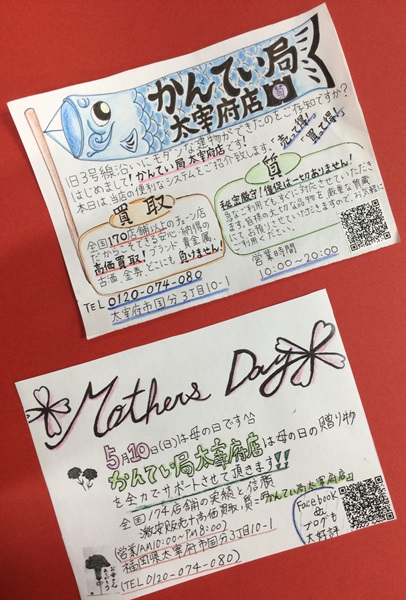 かんてい局
太宰府店 質
旧3号線沿いにモダンな建物ができたのをご存知ですか?
はじめまして!かんてい局太宰府店です!
本日は当店の便利なシステムをご紹介致します。
売って得!
買って得!
買取
全国170店舗以上のチェーン店
だからこそできる安心・納得の
高価買取!ブランド・貴金属
古酒、金券、どこにも負けません!
質
秘密厳守!催促は一切ありません!
急なご利用でも、すぐに対応させていただき
ます。皆様の大切な品物を、厳重な質蔵
にてお預りさせていただきますので、お気軽に
ご利用ください。
営業時間
10:00~20:00
TEL 0120-074-080
太宰府市国分3丁目10-1
Mothers Day
5月10日(日)は母の日です^^
かんてい局太宰府店は母の日の贈り物
を全力でサポートさせて頂きます!!
全国174店舗の実績と信頼
激安販売+高価買取・質=「かんてい局太宰府店」
(営業/AM10:00~PM8:00)
福岡県太宰府市国分3丁目10-1
(TEL0120-074-080)
Facebook
&
ブログも
大好評
お母さん
ありがとう